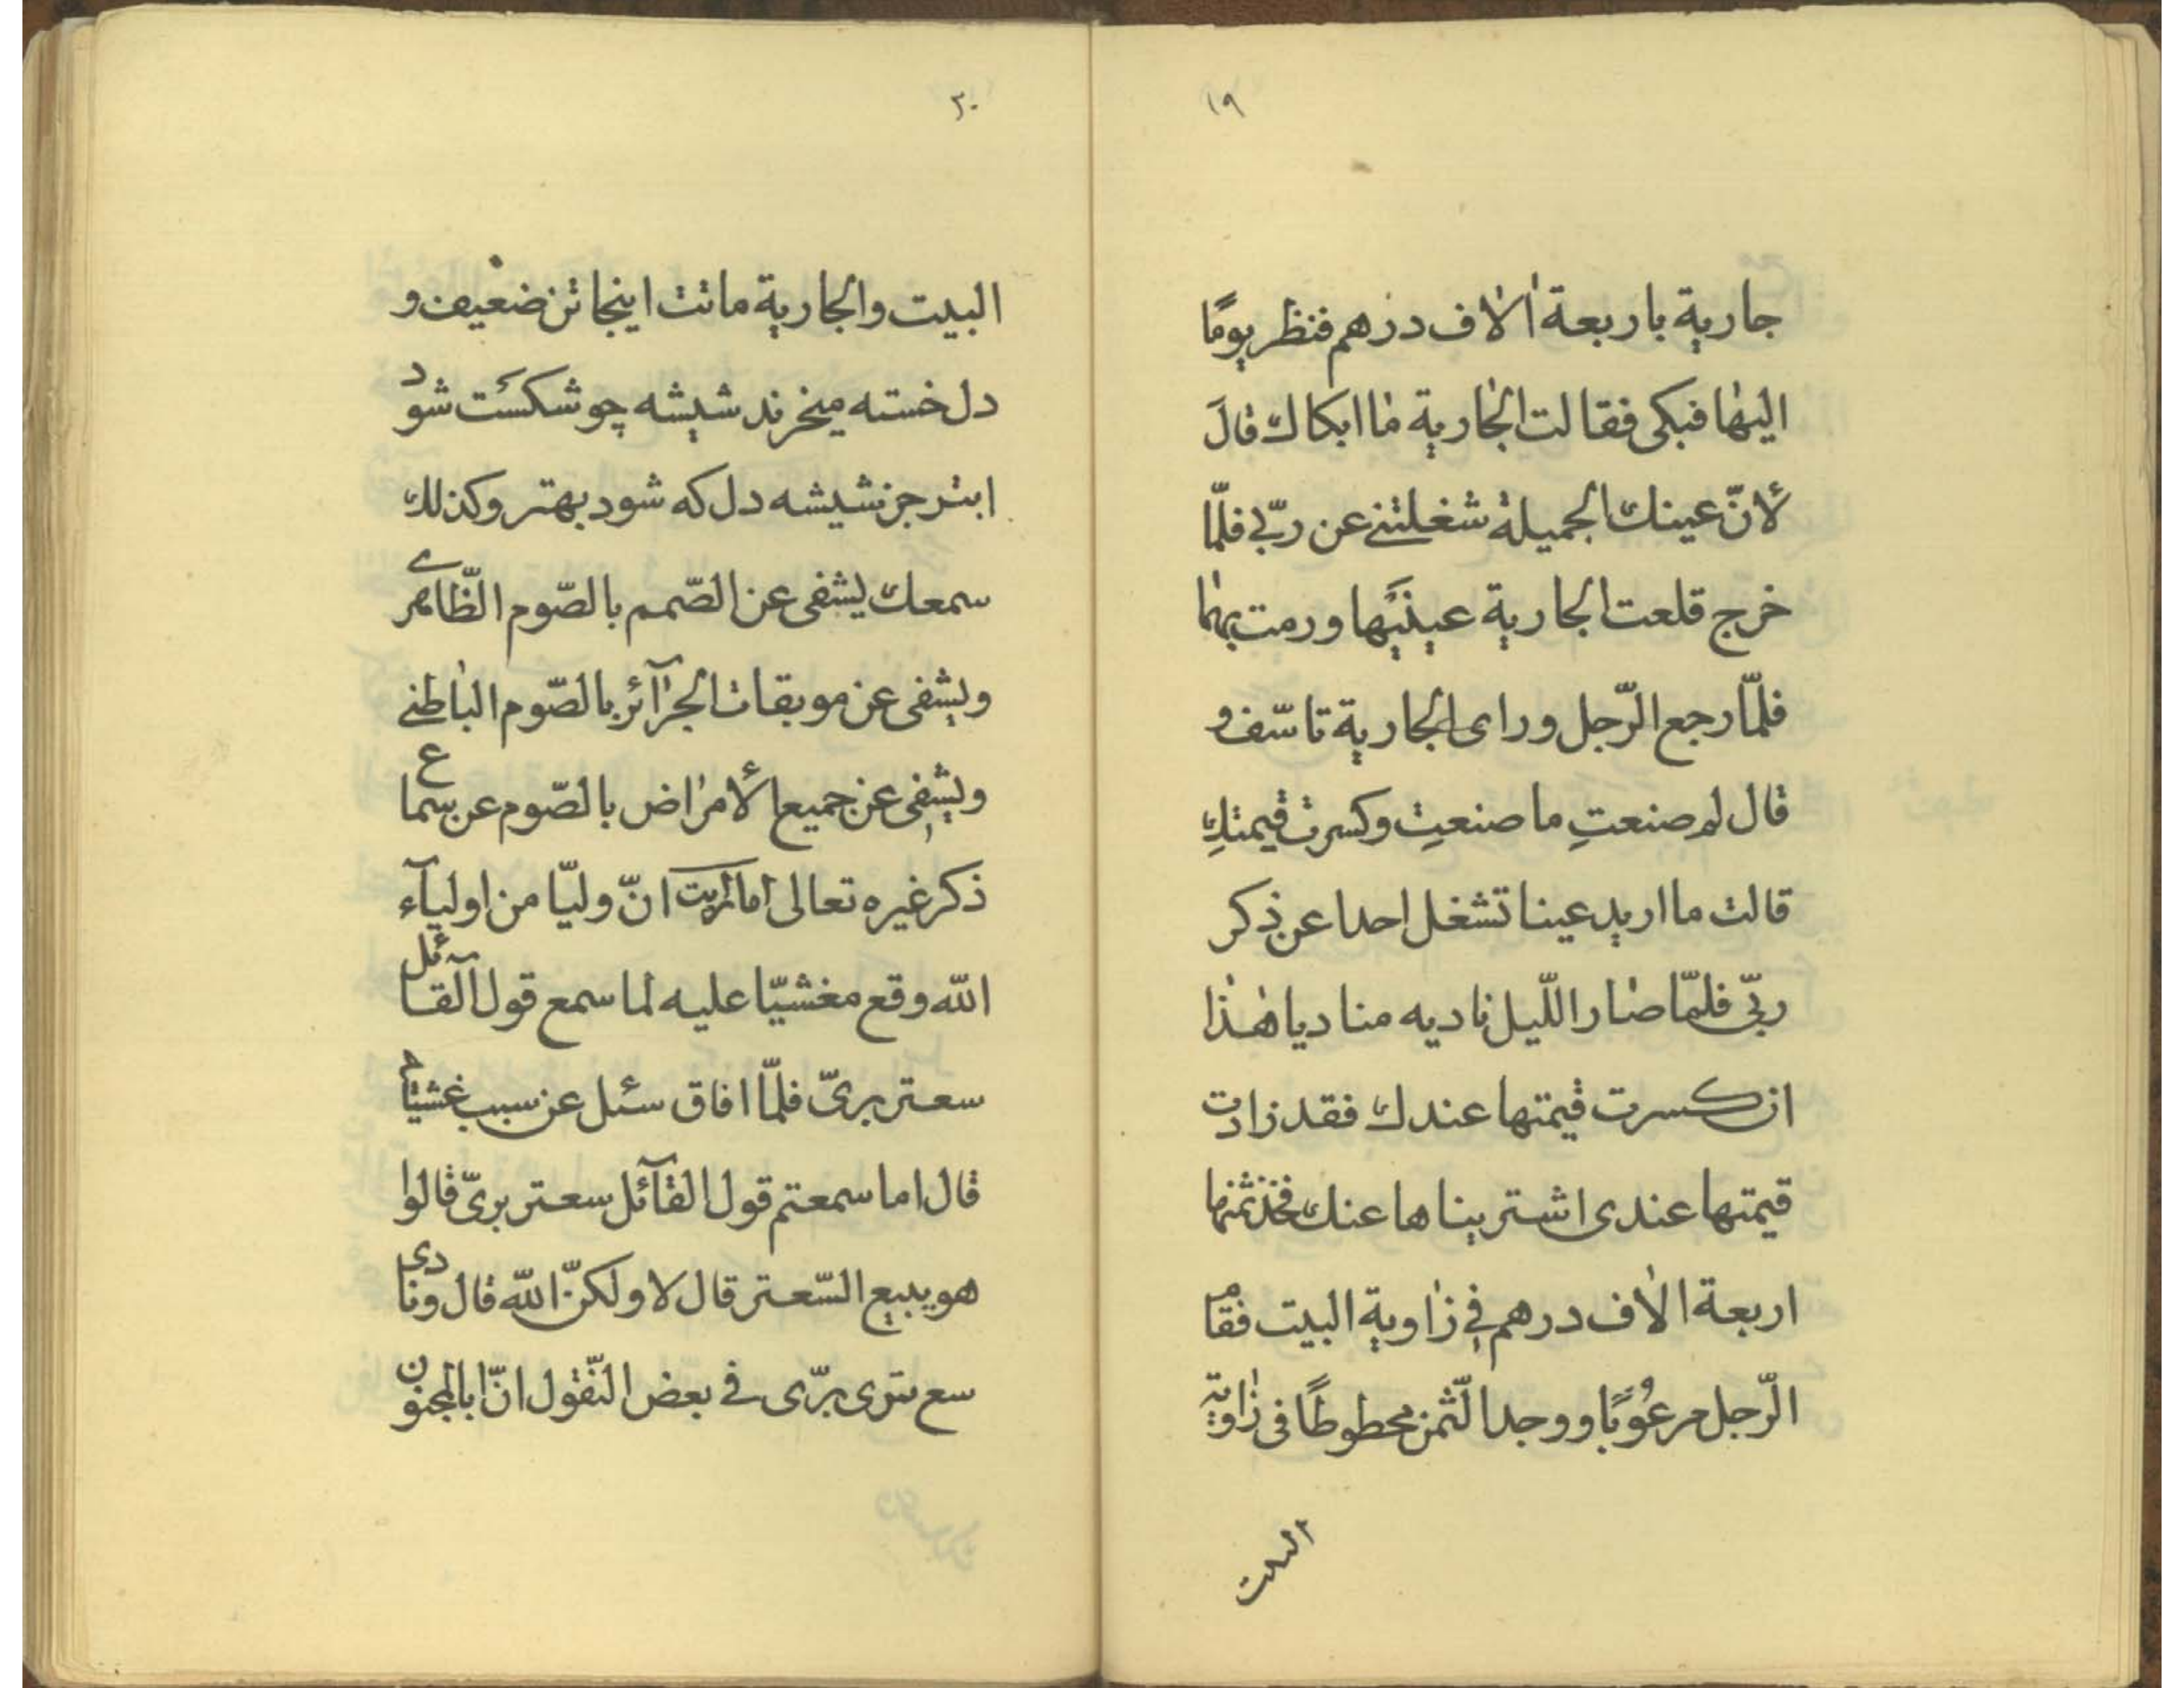 ١٩
جارية باربعة اٰلاٰف درهم فنظر يومًا
اليهٰا فبكى فقالت الجٰارية مٰا ابكاك قالَ
لأنّ عينك الجميلة شغلتنے عن ربّے فلمّا
خرج قلعت الجارية عينَيْها ورمت بهمٰا
فلمّا رجع الرّجل وراى الجارية تاسّف و
قال لم صنعتِ ما صنعتِ وكسرت قيمتكِ
قالت ما اريد عينا تشغل احدا عن ذكر
ربّى فلمّا صٰار اللّيل ناديه مناد يا هٰذا
ان كسرت قيمتها عندك فقد زادت
قيمتها عندى اشتريناها عنك فخذ ثمنها
اربعة الاٰف درهم فے زٰاوية البيت فقام
الرّجل مرعُوبًا ووجد الثّمن محطوطًا فى زٰاوية
البيت
٢٠
البيت والجارية ماتت اينجا تن ضعيف و
دل خسته ميخرند شيشه چو شكست شود
ابتر جز شيشه دل كه شود بهتر وكذلك
سمعك يشفى عن الصّمم بالصّوم الظّاهرے
ويشفى عن موبقات الجرٰآئر بالصّوم البٰاطنے
ويشفى عن جميع الأمرٰاض بالصّوم عن سماع
ذكر غيره تعالى انّ وليّا من اوليآء
الله وقع مغشيّا عليه لما سمع قول القآئل
سعتر برىّ فلمّا افاق سئل عن سبب
قال اما سمعتم قول القآئل سعتر برىّ قالوا
هو يبيع السّعتر قال لا ولكنّ الله قال ونادى
سع ترى برّى فے بعض النّقول انّ ابا المجنون